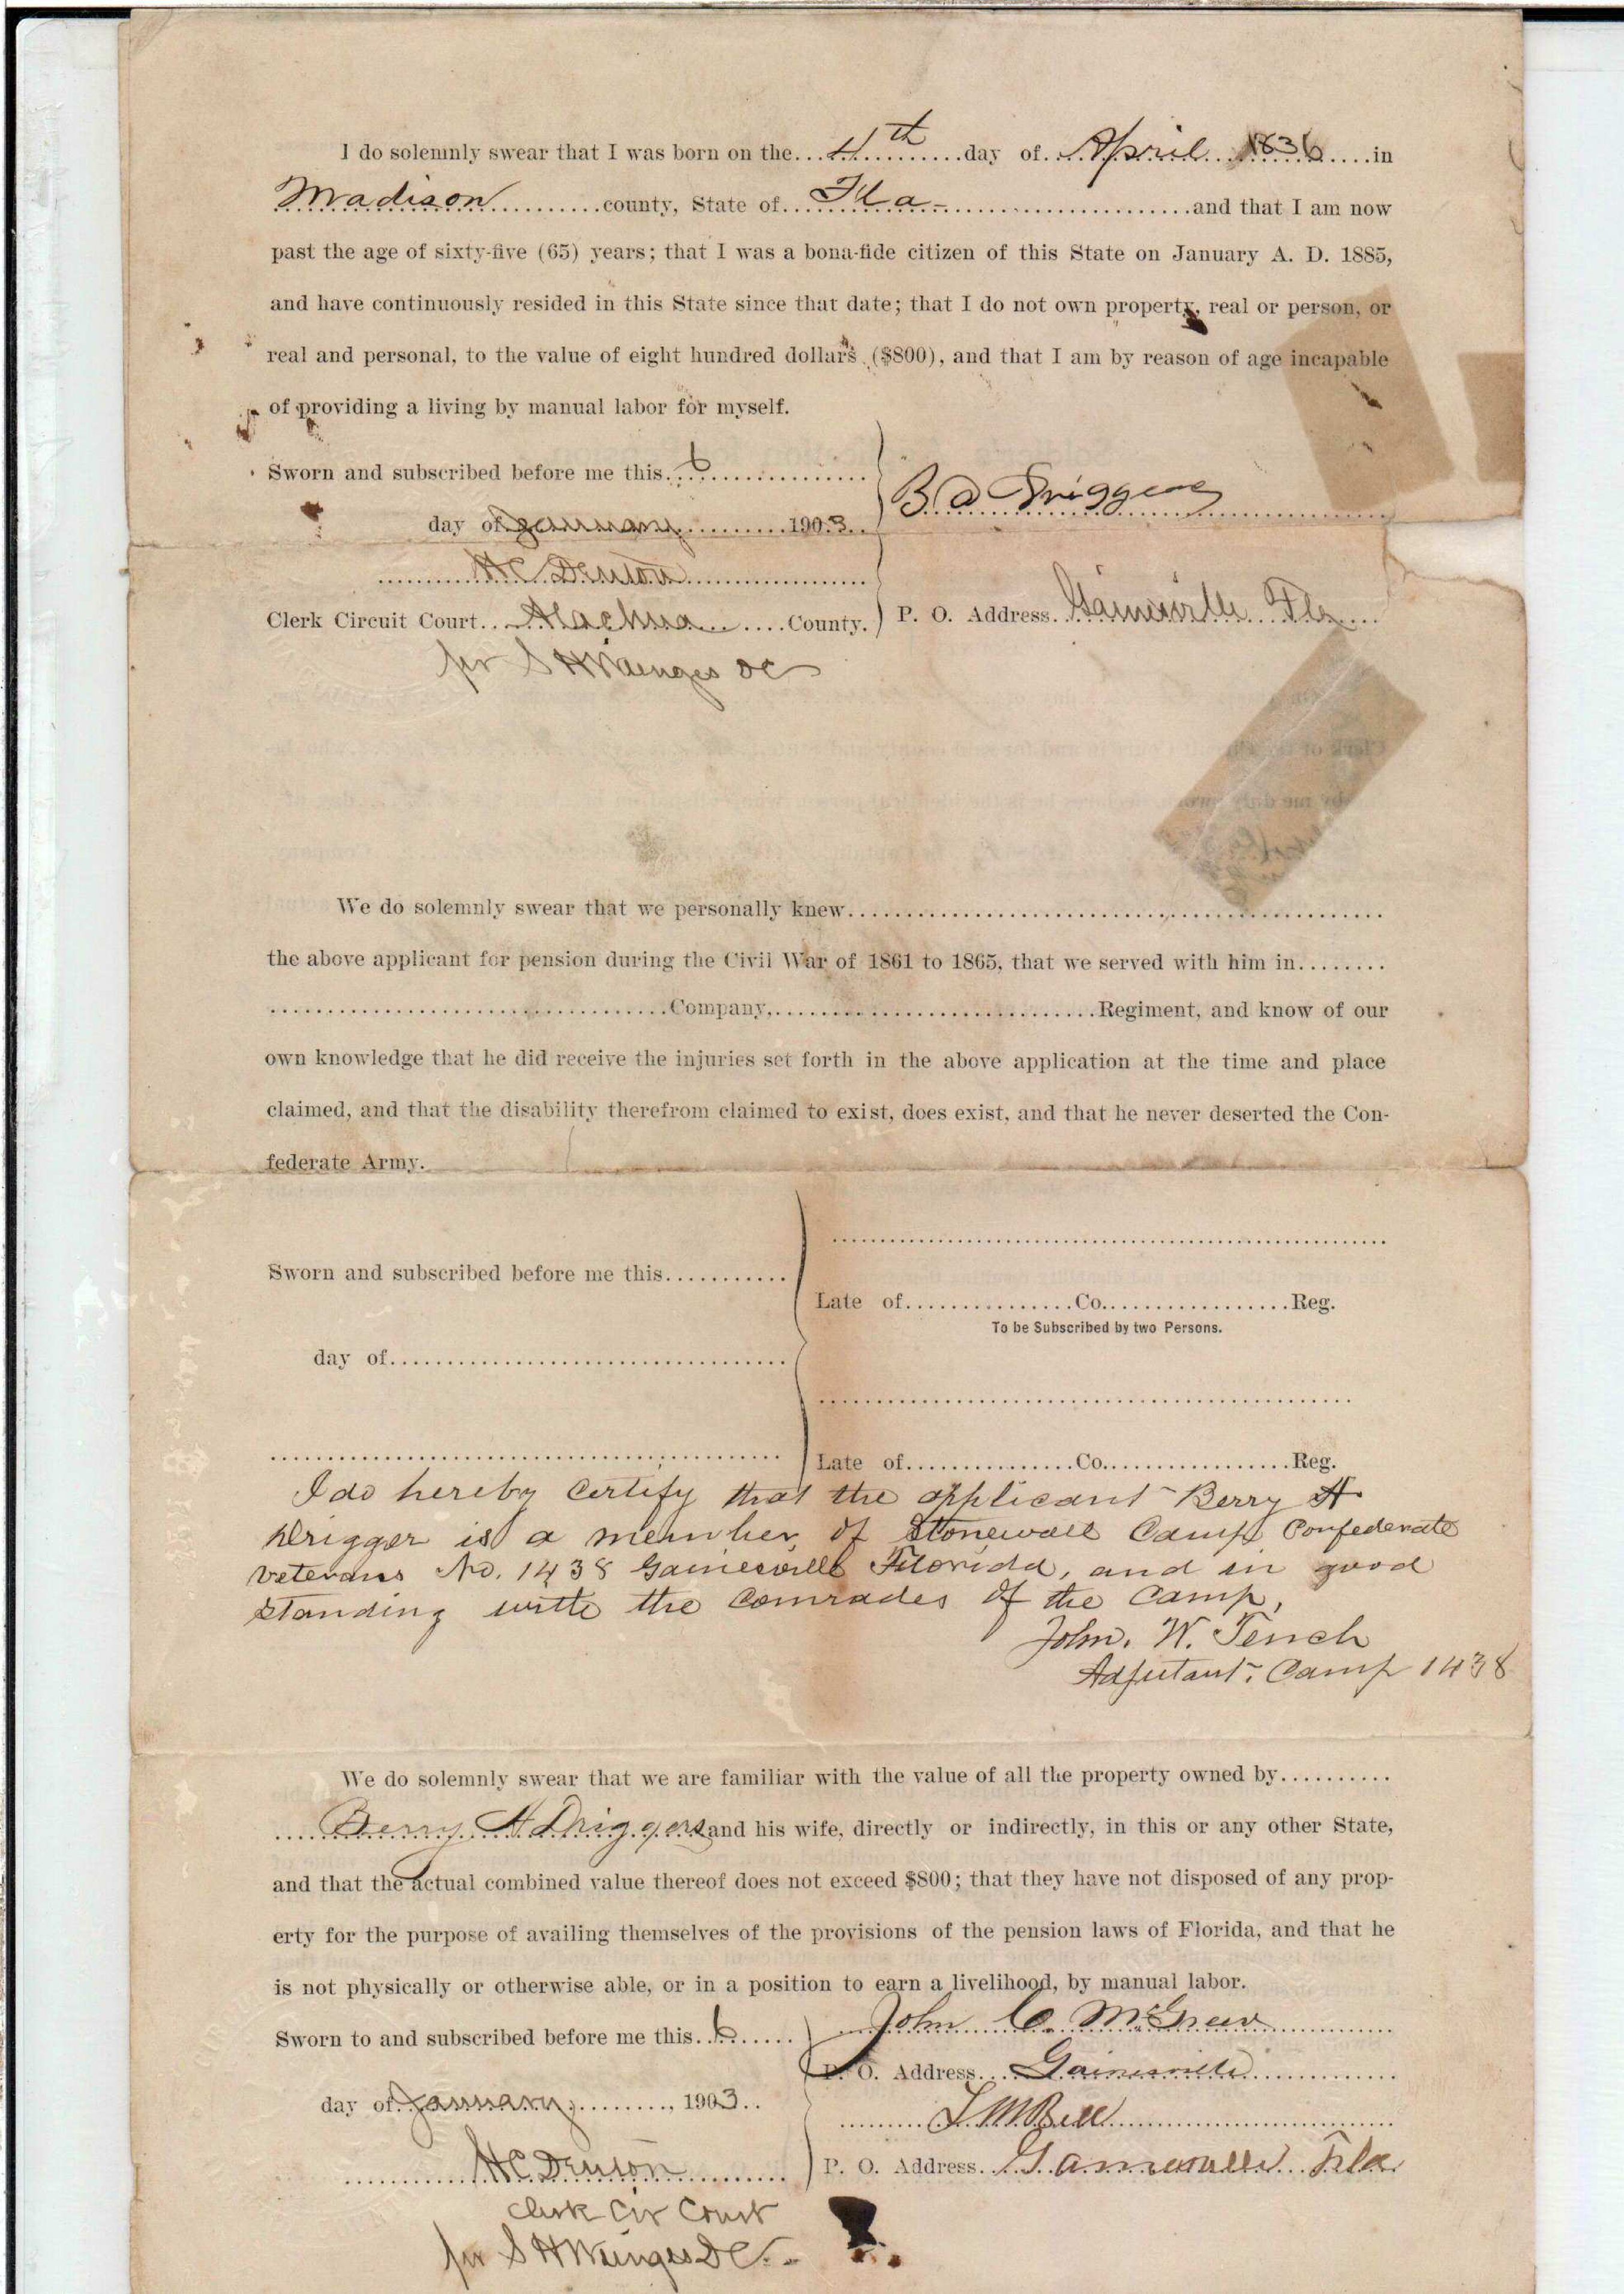 I do solemnly swear that I was born on the...4th...day of...April 1836...in
Madison...county, State of...Fla-...and that I am now
past the age of sixty-five (65) years; that I was a bona-fide citizen of this State on January A. D. 1885,
and have continuously resided in this State since that date; that I do not own property, real or person, or
real and personal, to the value of eight hundred dollars ($800), and that I am by reason of age incapable
of providing a living by manual labor for myself.
Sworn and subscribed before me this...6...
day of January...1903..
B A Driggers
H C Denton
Clerk Circuit Court...Alachua...County.
P. O. Address. Gainesville Fla
per S H Wienges DC
We do solemnly swear that we personally knew...
the above applicant for pension during the Civil War of 1861 to 1865, that we served with him in...
...Company,...Regiment, and know of our
own knowledge that he did receive the injuries set forth in the above application at the time and place
claimed, and that the disability therefrom claimed to exist, does exist, and that he never deserted the Con-
federate Army.
Sworn and subscribed before me this...
Late of...Co...Reg.
To be Subscribed by two Persons.
day of...
Late of...Co...Reg.
I do hereby Certify that the applicant Berry A
Drigger is a member of Stonewall Camp Confederate
Veterans No. 1438 Gainesville Florida, and in good
standing with the Comrades of the Camp,
John. W. Tench
Adjutant- Camp 1438
We do solemnly swear that we are familiar with the value of all the property owned by...
Berry A Driggers and his wife, directly or indirectly, in this or any other State,
and that the actual combined value thereof does not exceed $800; that they have not disposed of any prop-
erty for the purpose of availing themselves of the provisions of the pension laws of Florida, and that he
is not physically or otherwise able, or in a position to earn a livelihood, by manual labor.
Sworn to and subscribed before me this..6...
John C. McGrew
P. O. Address...Gainesville
day of January..., 1903..
L M Bell
H C Denton
P. O. Address. Gainesville Fla
Clerk Cir Court
per S H Wienges DC.